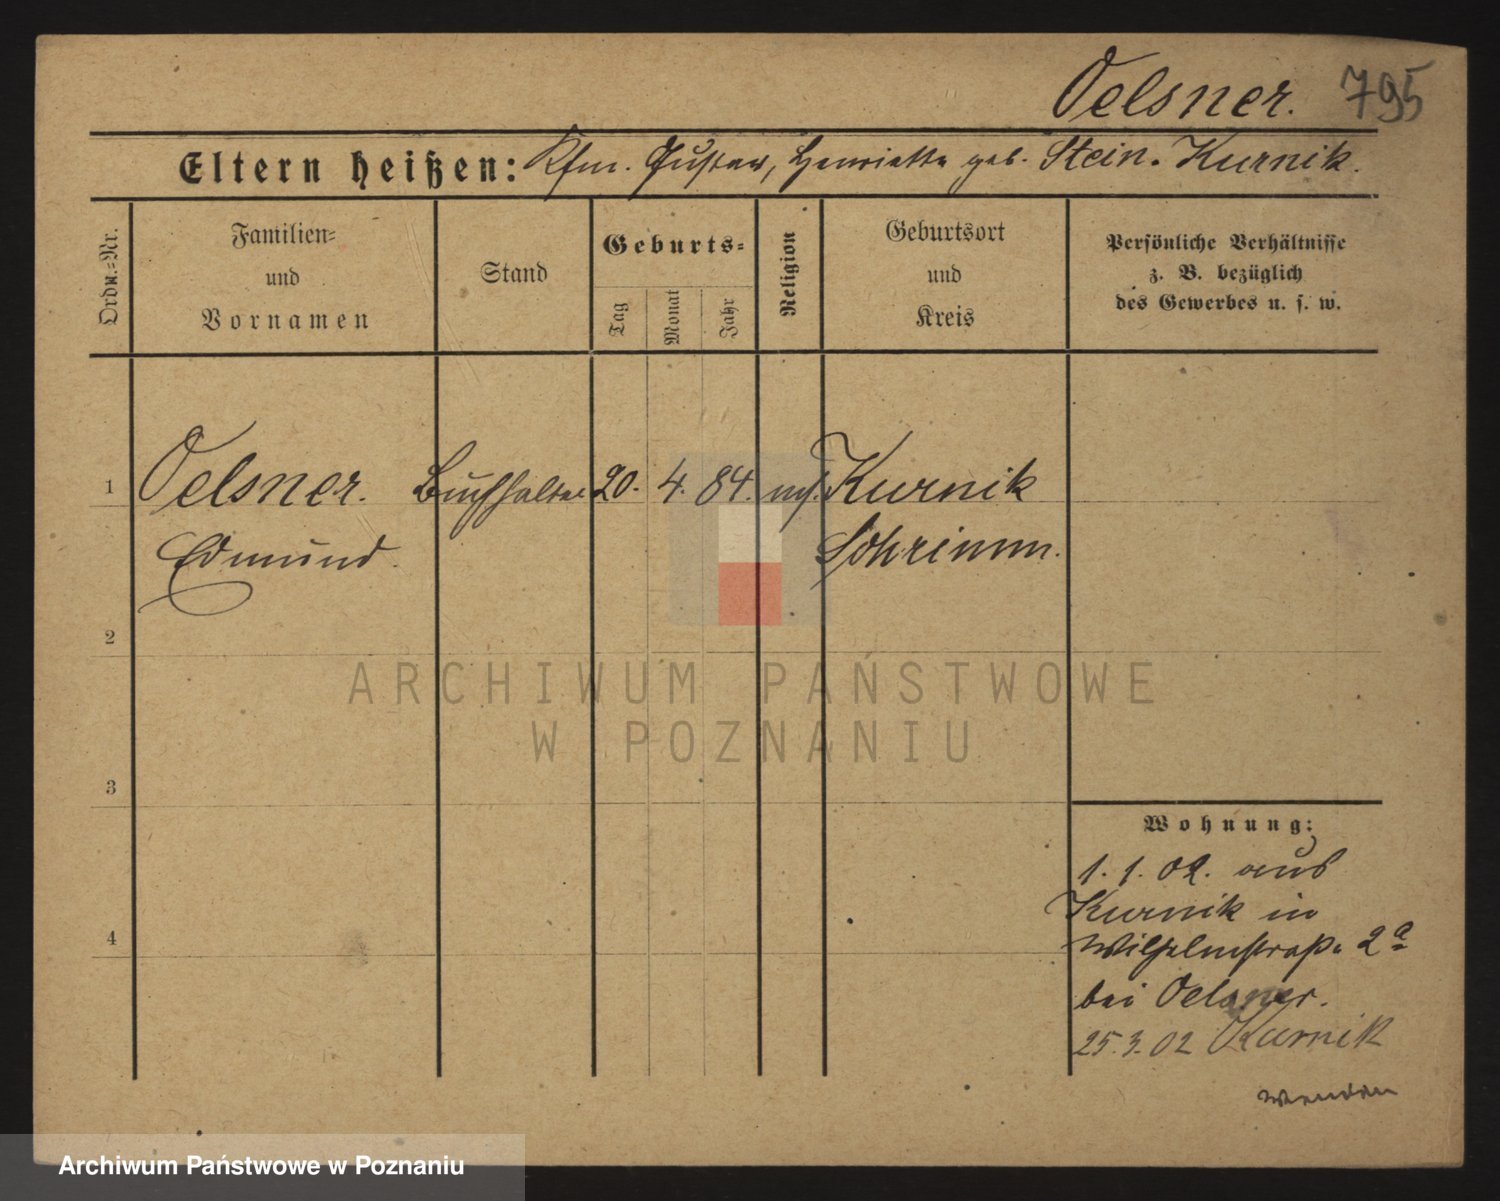 Oelsner. 795
Eltern heißen: Kfm. Gustav, Henriette geb. Stein. Kurnik.
Ordn.-Nr.
Familien-
und
Vornamen
Stand
Geburts-
Tag
Monat
Jahr
Religion
Geburtsort
und
Kreis
Persönliche Verhältnisse
z. B. bezüglich
des Gewerbes u. s. w.
1 Oelsner. Buchhalter 20. 4. 84. mos. Kurnik
Edmund. Schrimm.
2
3
4
Wohnung:
1. 1. 02. aus
Kurnik in
Wilhelmstraße 2a
bei Oelsner.
25.3.02 Kurnik
wenden
ARCHIWUM PAŃSTWOWE
W POZNANIU
Archiwum Państwowe w Poznaniu